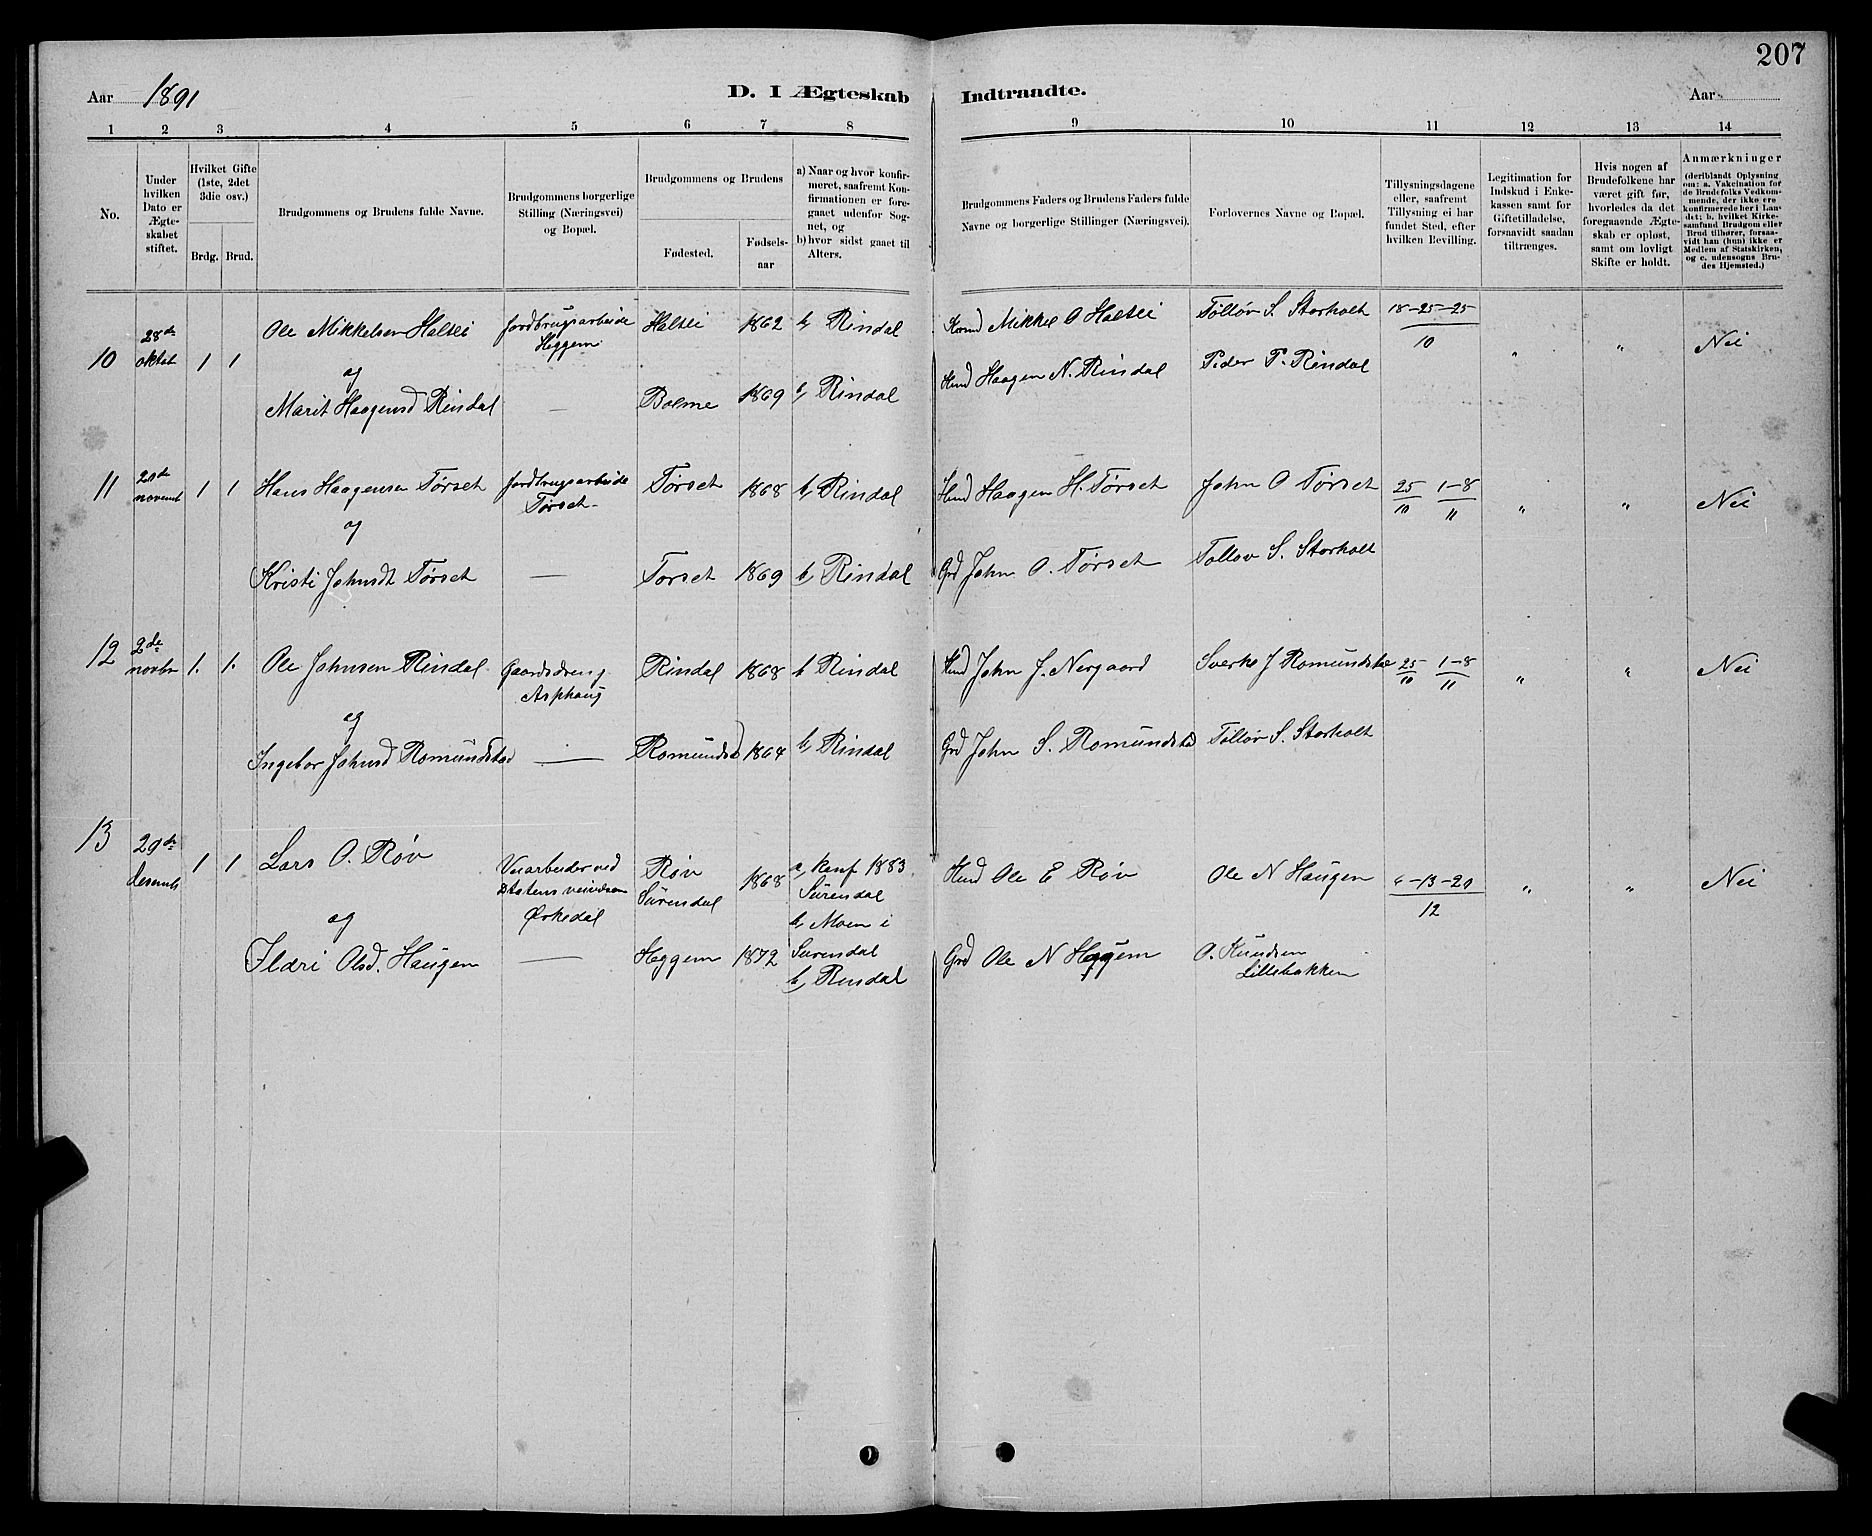 207
Aar 1891
D. I Ægteskab Indtraadte.
Aar
1 2 3 4 5 6 7 8 9 10 11 12 13 14
No.
Under
hvilken
Dato er
Ægte-
skabet
stiftet.
Hvilket Gifte
(1ste, 2det
3die osv.)
Brdg. Brud.
Brudgommens og Brudens fulde Navne.
Brudgommens borgerlige
Stilling (Næringsvei)
og Bopæl.
Brudgommens og Brudens
Fødested.
Fødsels-
aar
a) Naar og hvor konfir-
meret, saafremt Kon-
firmationen er fore-
gaaet udenfor Sog-
net, og
b) hvor sidst gaaet til
Alters.
Brudgommens Faders og Brudens Faders fulde
Navne og borgerlige Stillinger (Næringsvei).
Forlovernes Navne og Bopæl.
Tillysningsdagene
eller, saafremt
Tillysning ei har
fundet Sted, efter
hvilken Bevilling.
Legitimation for
Indskud i Enke-
kassen samt for
Giftetilladelse,
forsaavidt saadan
tiltrænges.
Hvis nogen af
Brudefolkene har
været gift før,
hvorledes da det
foregaaende Ægte-
skab er opløst,
samt om lovligt
Skifte er holdt.
Anmærkninger
(deriblandt Oplysning
om: a. Vakcination for
de Brudefolks Vedkom-
mende, der ikke ere
konfirmerede her i Lan-
det; b. hvilket Kirke-
samfund Brudgom eller
Brud tilhører, forsaa-
vidt han (hun) ikke er
Medlem af Statskirken,
og c. udensogns Bru-
des Hjemsted.)
10 28de oktob 1 1
Ole Mikkelsen Halsei jordbrugsarbeide Heggem Halsei 1862 b, Rindal Mikkel O Halsei Tolløv S. Storholt 18-25-25/10 " " Nei
og
Marit Haagensd Rindal — Bolme 1869 b, Rindal Hmd Haagen N. Rindal Peder P. Rindal
11 novemb 1 1
Hans Haagensen Tørset jordbrugsarbeide Tørset Tørset 1868 b, Rindal Hmd Haagen H. Tørset John O Tørset 25/10 1-8/11 " " Nei
og
Kristi Johnsdt Tørset — Tørset 1869 b, Rindal Grd John O. Tørset Tollov S. Storholt
12 2de novbr 1. 1.
Ole Johnsen Rindal Gaardsdreng Asphaug Rindal 1868 b Rindal Hmd John J. Nergaard Sverke J Romundstad 25/10 1-8/11 " " Nei
og
Ingebor Johnsd Romundstad — Romundsd 1864 b, Rindal Grd John S. Romundstd Tolløv S. Storholt
13 29de desemb 1 1
Lars O. Røv Veiarbeider ved Statens veivæsen Ørkedal Røv Surendal 1868 a, konf 1883 Surendal b, Moen i Surendal Hmd Ole E Røv Ole N Haugen 6-13-20/12 " " Nei
og
Ildri Olsd. Haugen — Heggem 1872 b, Rindal Grd Ole N Heggem O. Knudsen Lillebakken